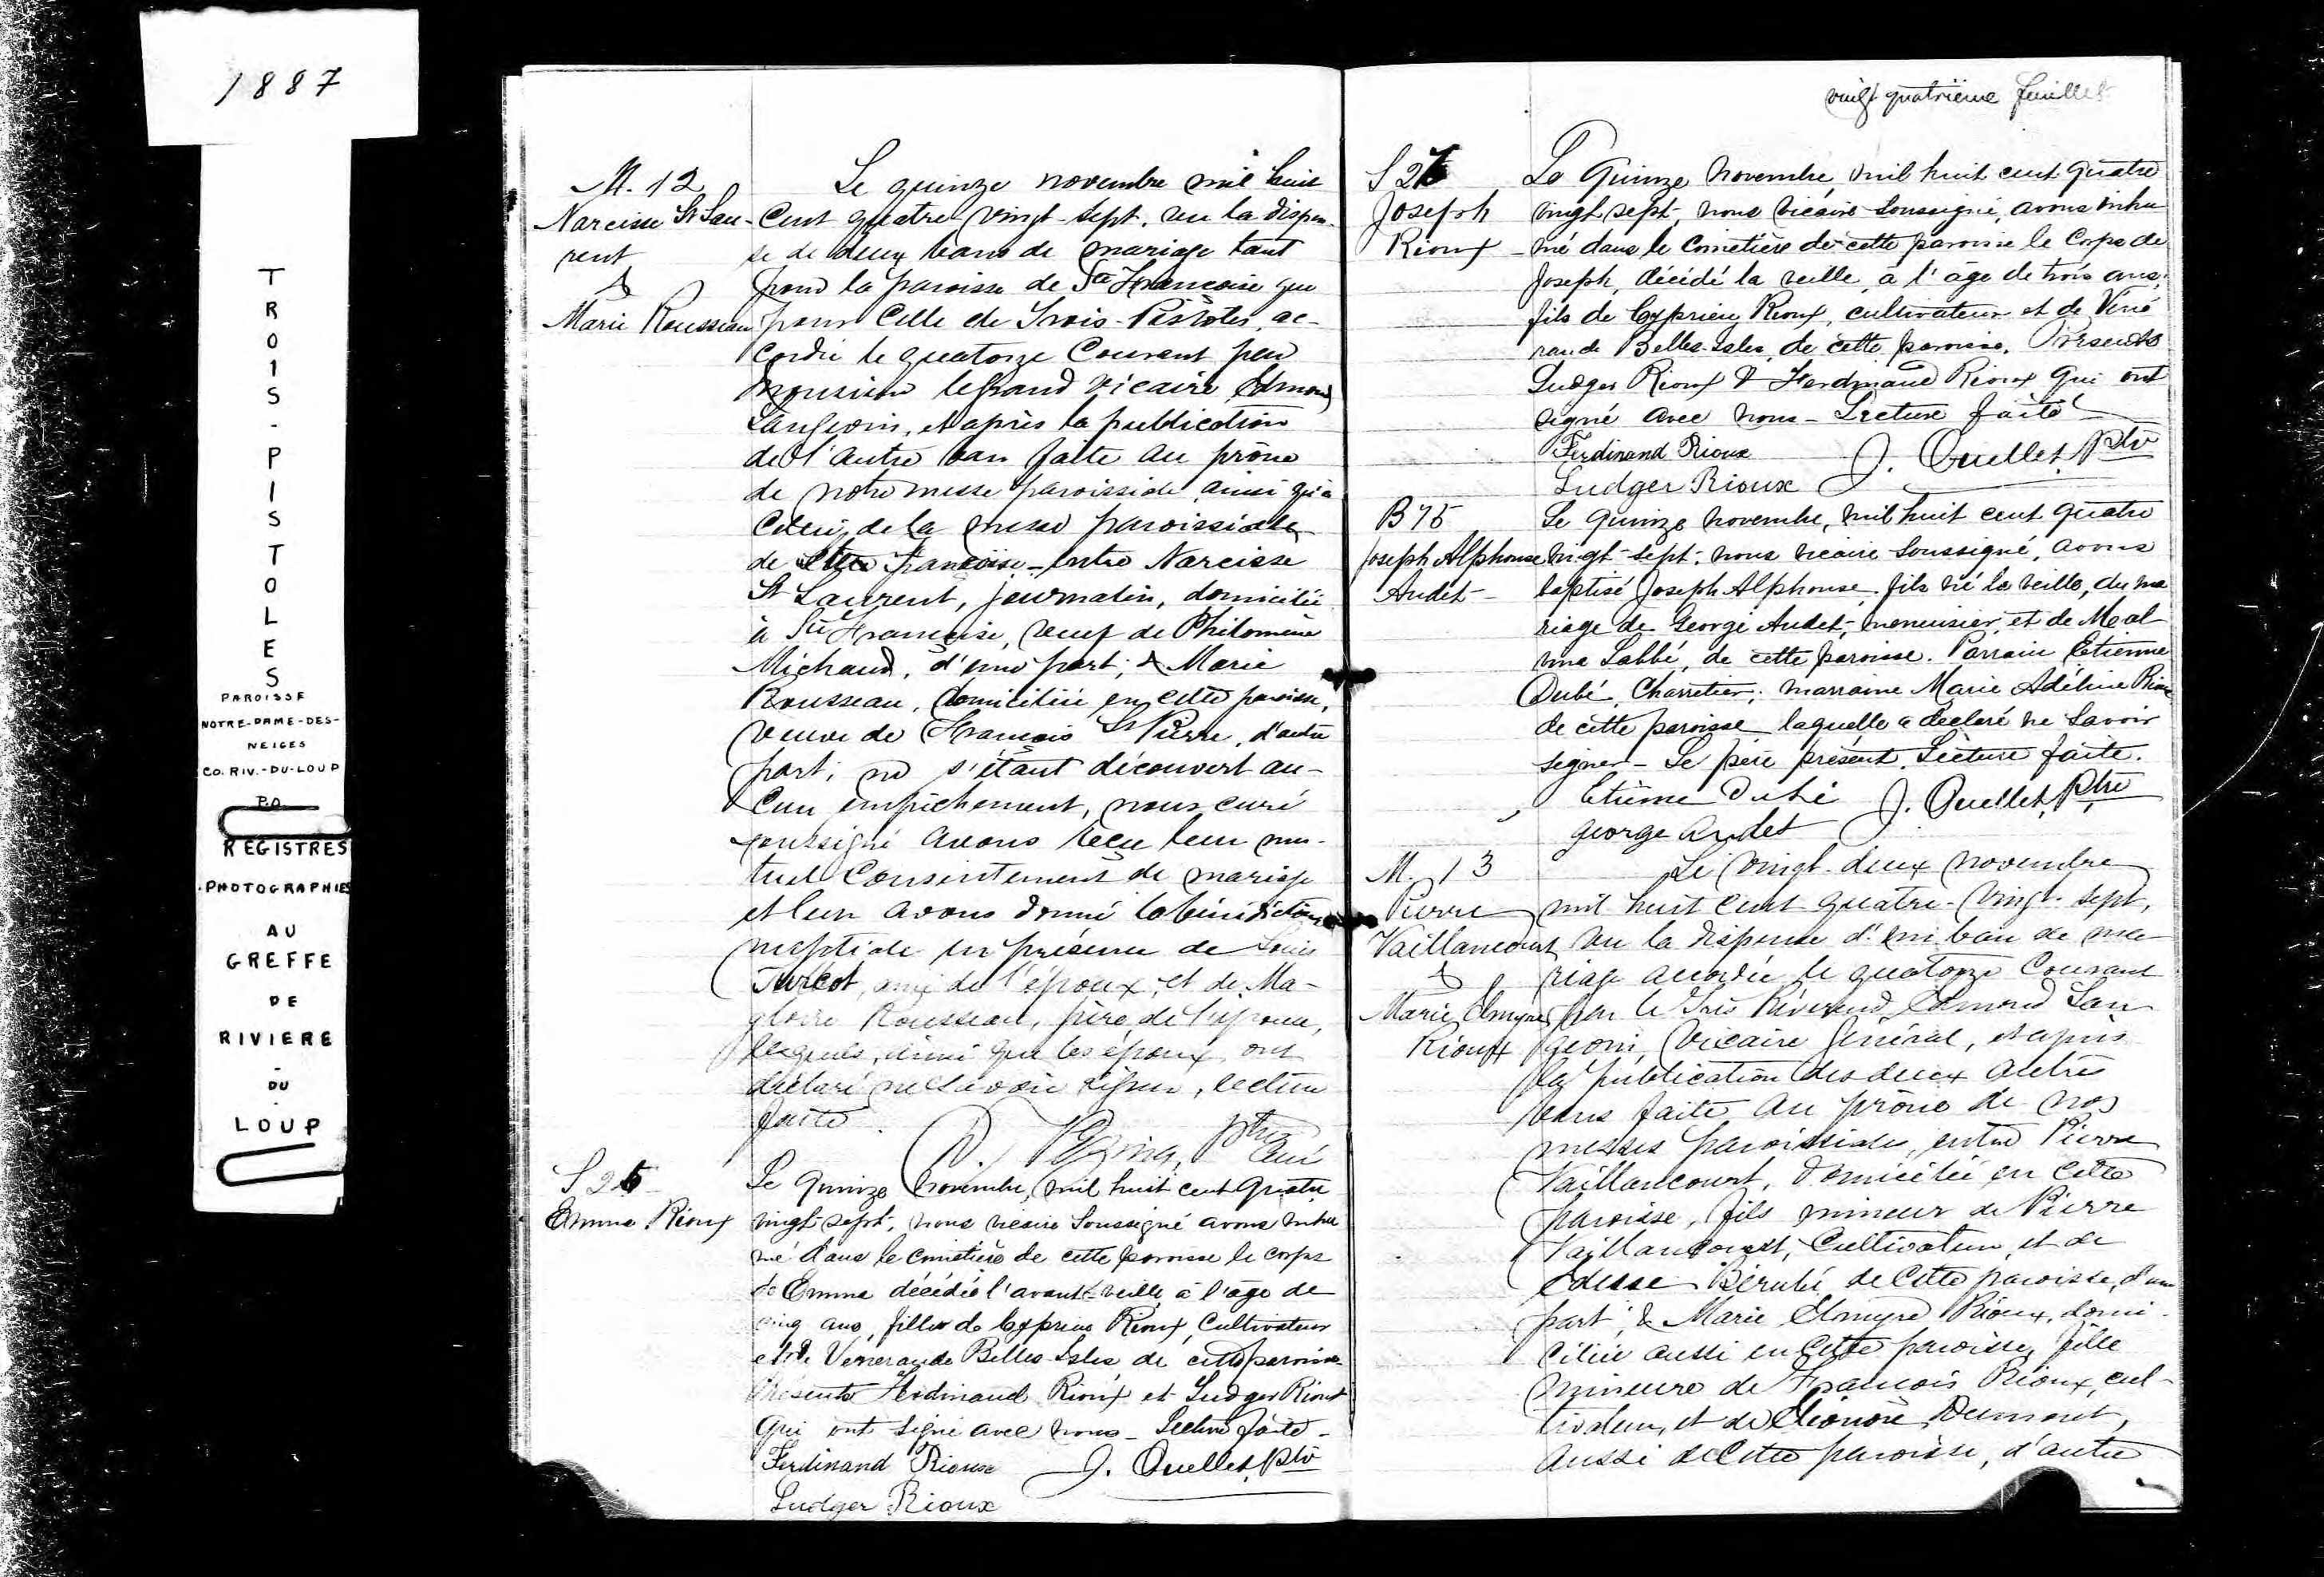 1887
TROIS-PISTOLES
PAROISSE
NOTRE-DAME-DES-
NEIGES
CO. RIV.-DU-LOUP
P.Q.
REGISTRES
PHOTOGRAPHIES
AU
GREFFE
DE
RIVIERE
-
DU
-
LOUP
M. 12
Narcisse St Lau-
rent
&
Marie Rousseau
Le quinze novembre mil huit
cent quatre-vingt-sept, vu la dispen-
se de deux bans de mariage tant
pour la paroisse de Ste Françoise que
pour celle de Trois-Pistoles, ac-
cordée le quatorze courant par
Monsieur le grand vicaire Edmond
Langevin, et après la publication
de l'autre ban faite au prône
de notre messe paroissiale ainsi qu'à
celui de la messe paroissiale
de Ste Françoise, entre Narcisse
St Laurent, journalier, domicilié
à Ste Françoise, veuf de Philomène
Michaud, d'une part; & Marie
Rousseau, domiciliée en cette paroisse,
veuve de François St Pierre, d'autre
part; ne s'étant découvert au-
cun empêchement, nous curé
soussigné avons reçu leur mu-
tuel consentement de mariage
et leur avons donné la bénédiction
nuptiale en présence de Louis
Turcot, ami de l'époux, et de Ma-
gloire Rousseau, père de l'épouse,
lesquels, ainsi que les époux, ont
déclaré ne savoir signer, lecture
faite.
D. Vézina, Ptre Curé
S 26
Emma Rioux
Le quinze novembre, mil huit cent quatre
vingt-sept, nous vicaire soussigné avons inhu
mé dans le cimetière de cette paroisse le corps
de Emma décédée l'avant-veille à l'âge de
cinq ans, fille de Cyprien Rioux, cultivateur
et de Vénérande Belles-Isles de cette paroisse
Présents Ferdinand Rioux et Ludger Rioux
qui ont signé avec nous - Lecture faite -
Ferdinand Rioux J. Ouellet, Ptre
Ludger Rioux
vingt quatrième feuillet
S 27
Joseph
Rioux
Le Quinze Novembre, mil huit cent quatre
vingt sept, nous vicaire soussigné, avons inhu
mé dans le Cimetière de cette paroisse le Corps de
Joseph, décédé la veille, à l'âge de trois ans,
fils de Cyprien Rioux, cultivateur et de Véné
rande Belles-Isles, de cette paroisse. Présents
Ludger Rioux & Ferdinand Rioux qui ont
signé avec nous - Lecture faite
Ferdinand Rioux J. Ouellet, Ptre
Ludger Rioux
B 75
Joseph Alphonse
Audet
Le quinze novembre, mil huit cent quatre
vingt-sept, nous vicaire soussigné, avons
baptisé Joseph Alphonse, fils né la veille, du ma
riage de George Audet, menuisier, et de Mal
vina Labbé, de cette paroisse. Parrain Etienne
Dubé, Charretier; marraine Marie Adéline Rioux
de cette paroisse laquelle a déclaré ne savoir
signer - Le père présent. Lecture faite.
Etienne Dubé J. Ouellet, Ptre
george audet
M. 13
Pierre
Vaillancourt
&
Marie Elmyre
Rioux
Le vingt-deux novembre
mil huit cent quatre-vingt-sept,
vu la dispense d'un ban de ma-
riage accordée le quatorze courant
par le Très Révérend Edmond Lan
gevin, Vicaire Général, et après
la publication des deux autres
bans faite au prône de nos
messes paroissiales, entre Pierre
Vaillancourt, domicilié en cette
paroisse, fils mineur de Pierre
Vaillancourt, cultivateur, et de
Edesse Bérubé de cette paroisse, d'une
part; & Marie Elmyre Rioux, domi-
ciliée aussi en cette paroisse, fille
mineure de François Rioux, cul-
tivateur, et de Eléonore Dumont,
aussi de cette paroisse, d'autre